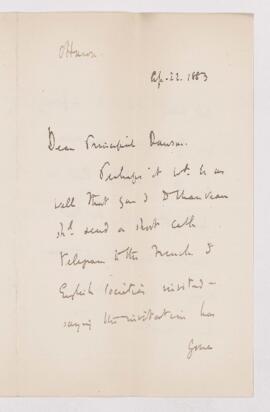 Ottawa
Ap. 22. 1883
Dear Principal Dawson.
Perhaps it wd. be as
well that you & Dr Chauveau
shd. send a short cable
telegram to the French &
English Societies invited -
saying the invitation has
gone